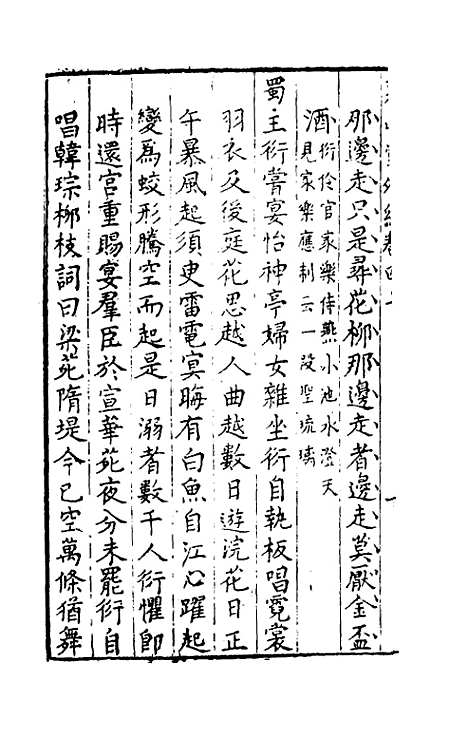 那邊走只是尋花柳那邊走者邊走莫厭金盃
酒衍伶官家樂侍燕小池水澄天
見家樂應制云一段聖琉璃
蜀主衍嘗宴怡神亭婦女雜坐衍自執板唱霓裳
羽衣及後庭花思越人曲越數日遊浣花日正
午暴風起須臾雷電冥晦有白魚自江心躍起
變爲蛟形騰空而起是日溺者數千人衍懼即
時還宮重賜宴羣臣於宣華苑夜分未罷衍自
唱韓琮柳枝詞曰梁苑隋堤今已空萬條猶舞